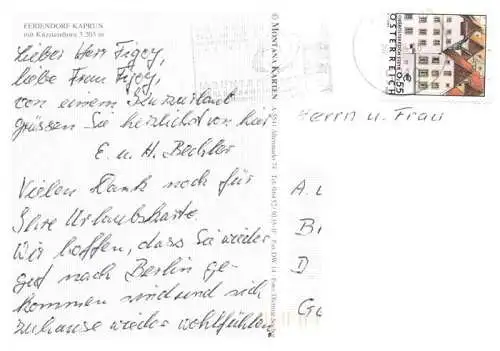 FERIENDORF KAPRUN
mit Kitzsteinhorn 3.203 m
Lieber Herr Figey,
liebe Frau Figey,
von einem Kurzurlaub
grüssen Sie herzlichst von hier
E. u. H. Bechler
Vielen Dank noch für
Ihre Urlaubskarte.
Wir hoffen, dass Sie wieder
gut nach Berlin ge-
kommen sind und sich
zuhause wieder wohlfühlen
© MONTANA KARTEN
ÖSTERREICH
€ 0,55
Herrn u. Frau
A.
B
D
G